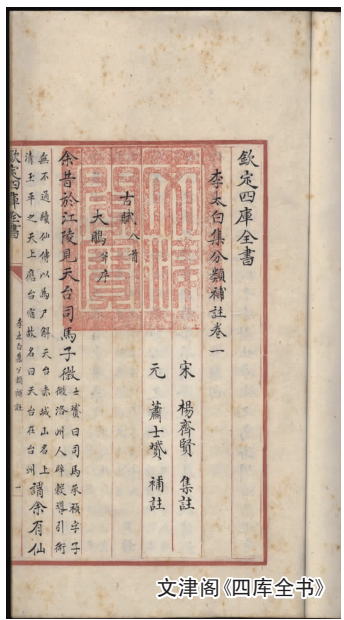 欽定四庫全書
李太白集分類補註卷一
宋 楊齊賢 集註
元 蕭士贇 補註
古賦八首
大鵬并序
余昔於江陵見天台司馬子微
士贇曰司馬承禎字子
微洛州人辟穀導引術
無不通續仙傳以馬尸解天台赤城山名上
清玉平之天上應台宿故名曰天台在台州
謂余有仙
欽定四庫全書
李太白集分類補註
一
文津閣寶
文津阁《四库全书》